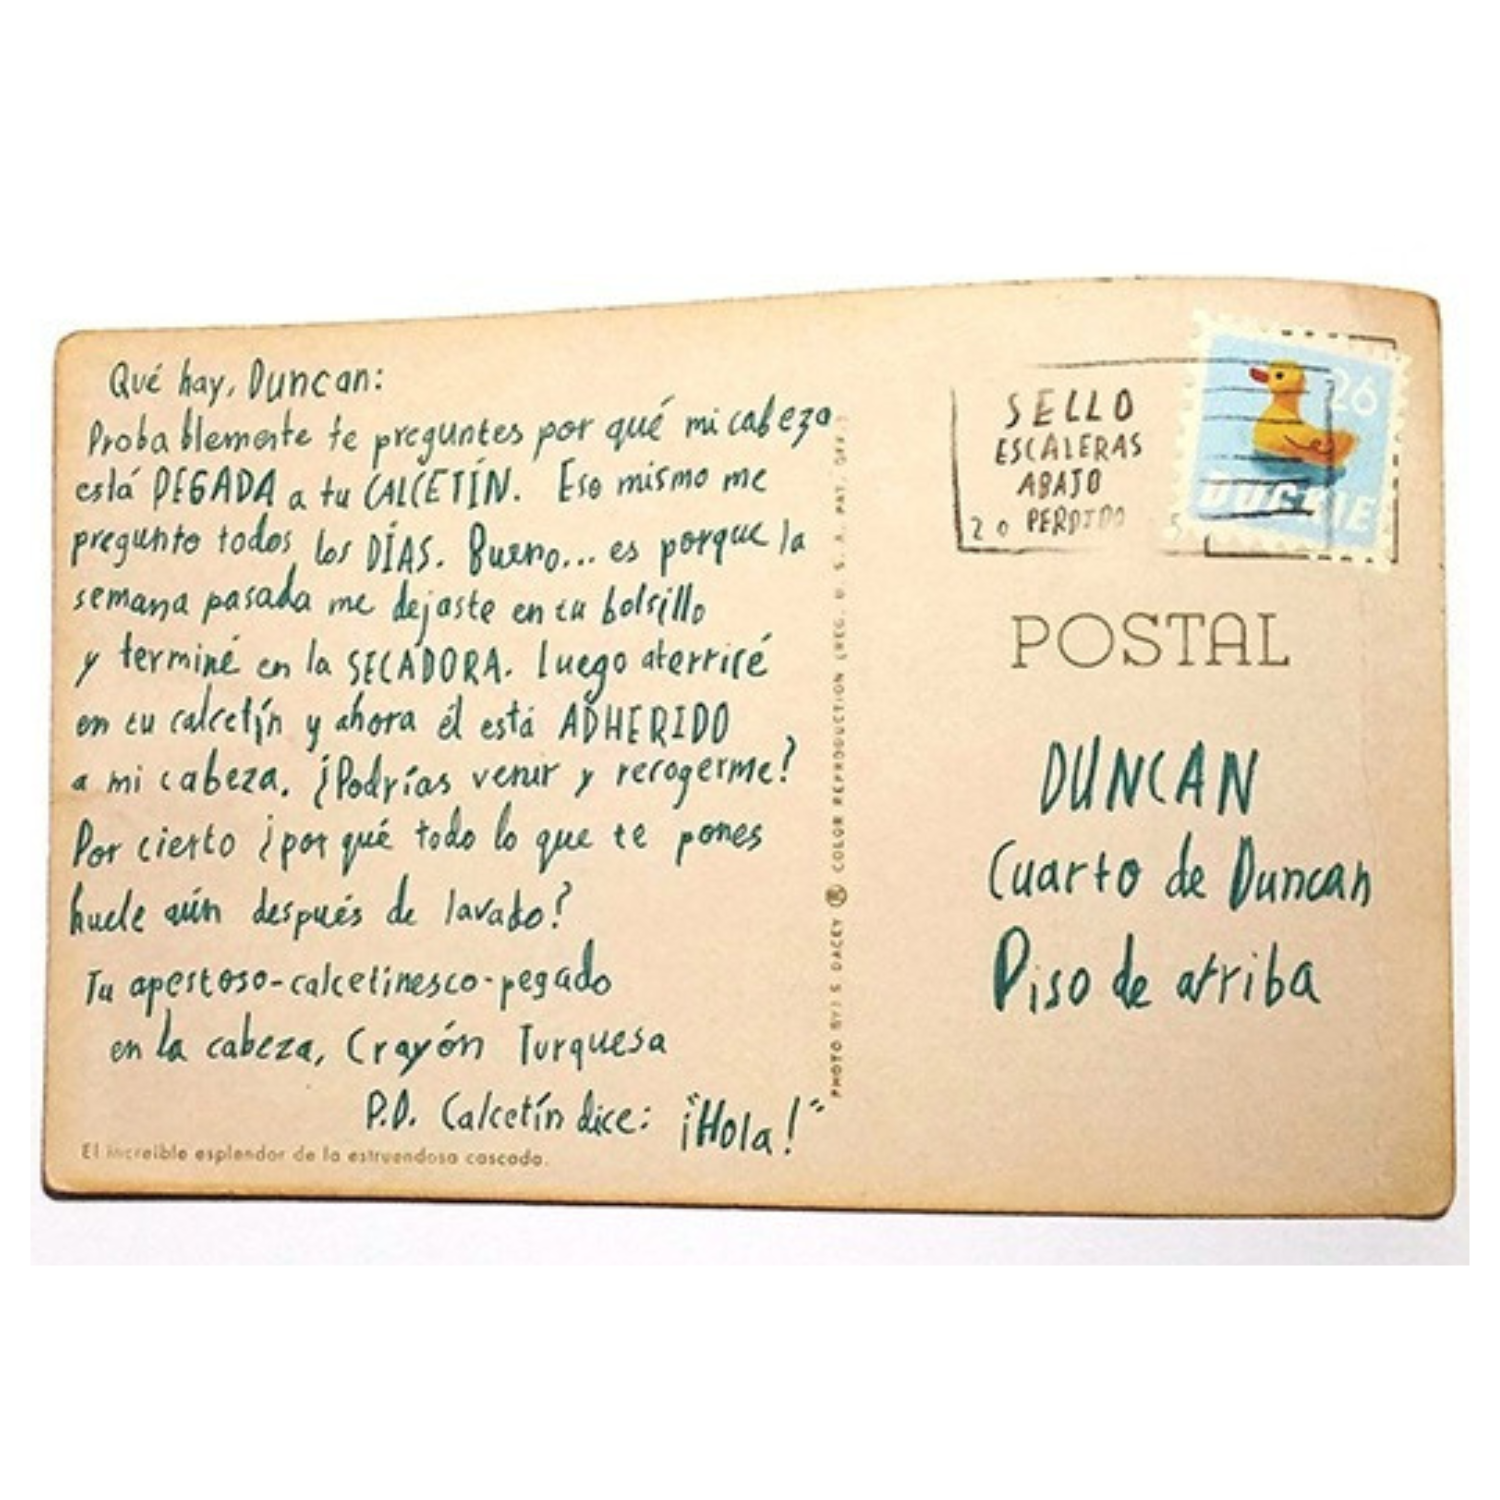 Qué hay, Duncan:
Probablemente te preguntes por qué mi cabeza
está PEGADA a tu CALCETÍN. Eso mismo me
pregunto todos los DÍAS. Bueno... es porque la
semana pasada me dejaste en tu bolsillo
y terminé en la SECADORA. Luego aterricé
en tu calcetín y ahora él está ADHERIDO
a mi cabeza. ¿Podrías venir y recogerme?
Por cierto ¿por qué todo lo que te pones
huele aún después de lavado?
Tu apestoso-calcetinesco-pegado
en la cabeza, Crayón Turquesa
P.D. Calcetín dice: "¡Hola!"
El increíble esplendor de la estruendosa cascada.
PHOTO BY J S. DACEY COLOR REPRODUCTION (REG. U. S. A. PAT. OFF.)
SELLO
ESCALERAS
ABAJO
20 PERDIDO 5
26
DUCKIE
POSTAL
DUNCAN
Cuarto de Duncan
Piso de arriba